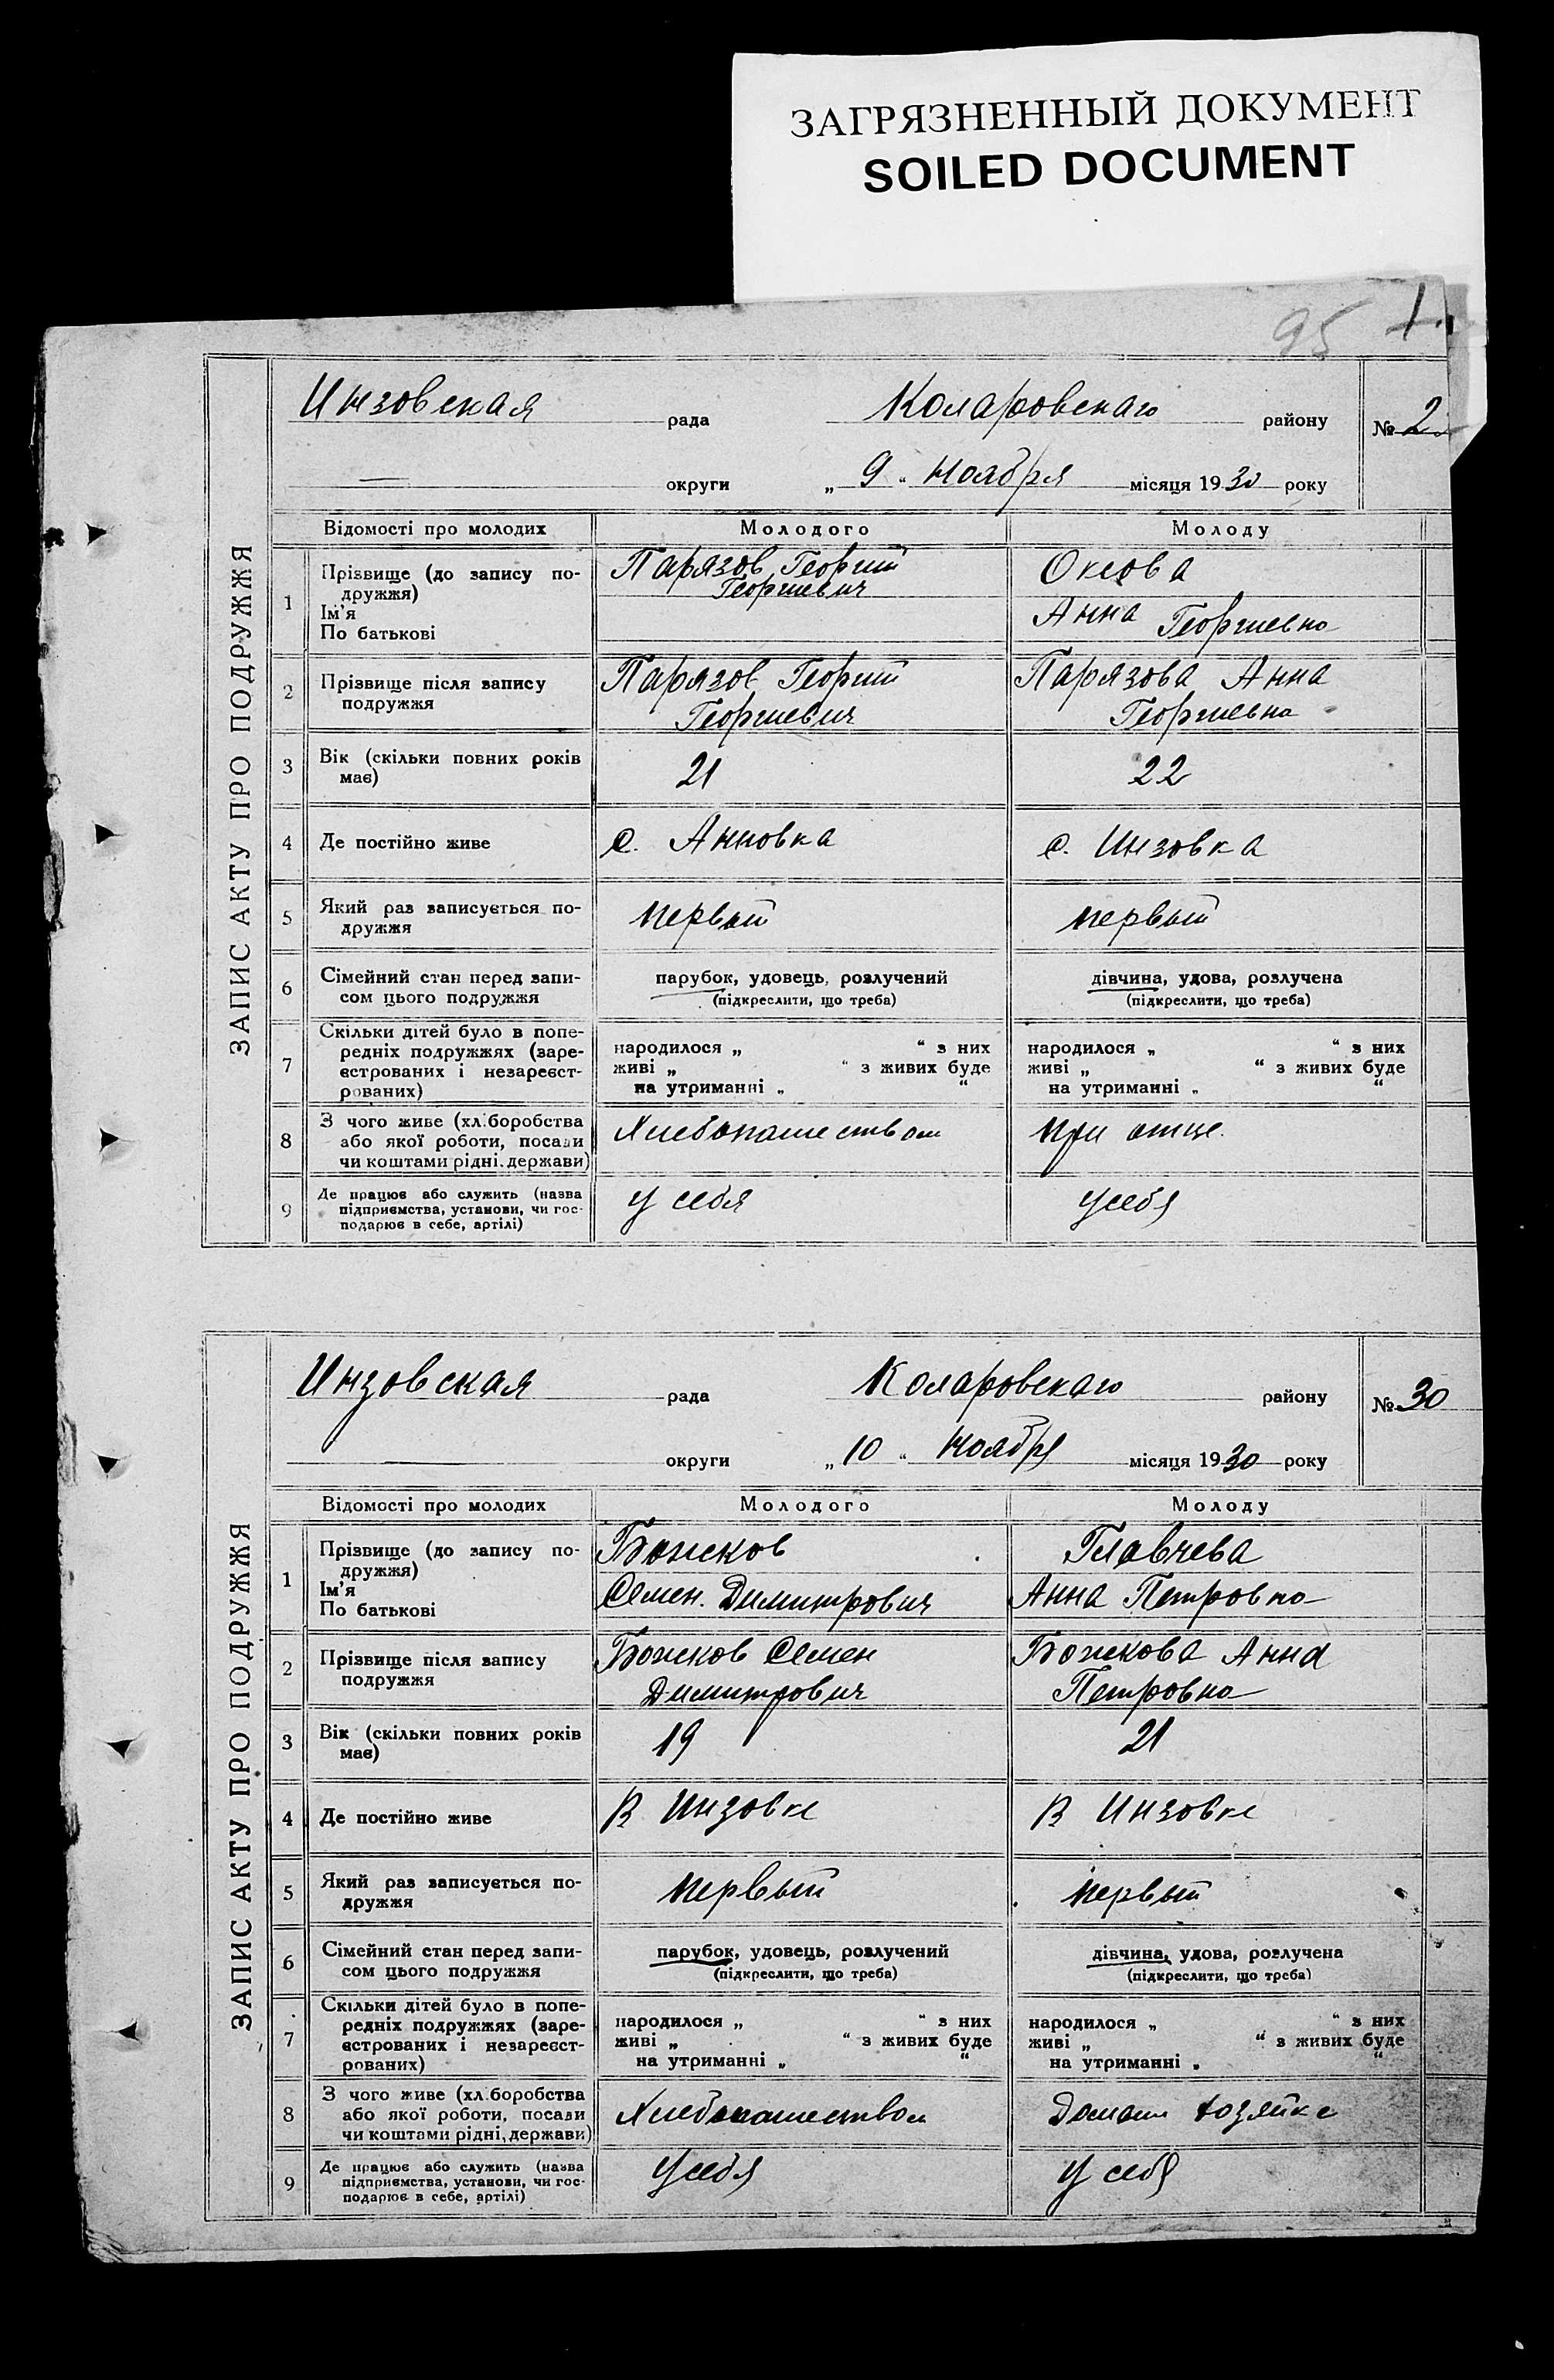 ЗАГРЯЗНЕННЫЙ ДОКУМЕНТ
SOILED DOCUMENT
95
ЗАПИС АКТУ ПРО ПОДРУЖЖЯ
Инзовская рада Коларовскаго району № 2
округи „ 9 “ Ноября місяця 1930 року
Відомості про молодих Молодого Молоду
1 Прізвище (до запису по-
дружжя)
Ім'я
По батькові
Парязов Георгий
Георгиевич
Оксова
Анна Георгиевна
2 Прізвище після запису
подружжя
Парязов Георгий
Георгиевич
Парязова Анна
Георгиевна
3 Вік (скільки повних років
має)
21 22
4 Де постійно живе с. Анновка с. Инзовка
5 Який раз записується по-
дружжя
первый первый
6 Сімейний стан перед запи-
сом цього подружжя
парубок, удовець, розлучений
(підкреслити, що треба)
дівчина, удова, розлучена
(підкреслити, що треба)
7 Скільки дітей було в попе-
редніх подружжях (заре-
єстрованих і незареєст-
рованих)
народилося „ “ з них
живі „ “ з живих буде
на утриманні „ “
народилося „ “ з них
живі „ “ з живих буде
на утриманні „ “
8 З чого живе (хліборобства
або якої роботи, посади
чи коштами рідні, держави)
Хлебопашеством при отце.
9 Де працює або служить (назва
підприємства, установи, чи гос-
подарює в себе, артілі)
у себя у себя
ЗАПИС АКТУ ПРО ПОДРУЖЖЯ
Инзовская рада Коларовскаго району № 30
округи „ 10 “ Ноября місяця 1930 року
Відомості про молодих Молодого Молоду
1 Прізвище (до запису по-
дружжя)
Ім'я
По батькові
Божков
Семен. Димитрович
Главчева
Анна Петровна
2 Прізвище після запису
подружжя
Божков Семен
Димитрович
Божкова Анна
Петровна
3 Вік (скільки повних років
має)
19 21
4 Де постійно живе В Инзовке В Инзовке
5 Який раз записується по-
дружжя
первый первый
6 Сімейний стан перед запи-
сом цього подружжя
парубок, удовець, розлучений
(підкреслити, що треба)
дівчина, удова, розлучена
(підкреслити, що треба)
7 Скільки дітей було в попе-
редніх подружжях (заре-
єстрованих і незареєст-
рованих)
народилося „ “ з них
живі „ “ з живих буде
на утриманні „ “
народилося „ “ з них
живі „ “ з живих буде
на утриманні „ “
8 З чого живе (хліборобства
або якої роботи, посади
чи коштами рідні, держави)
Хлебопашеством Домаш хозяйке
9 Де працює або служить (назва
підприємства, установи, чи гос-
подарює в себе, артілі)
у себя у себя